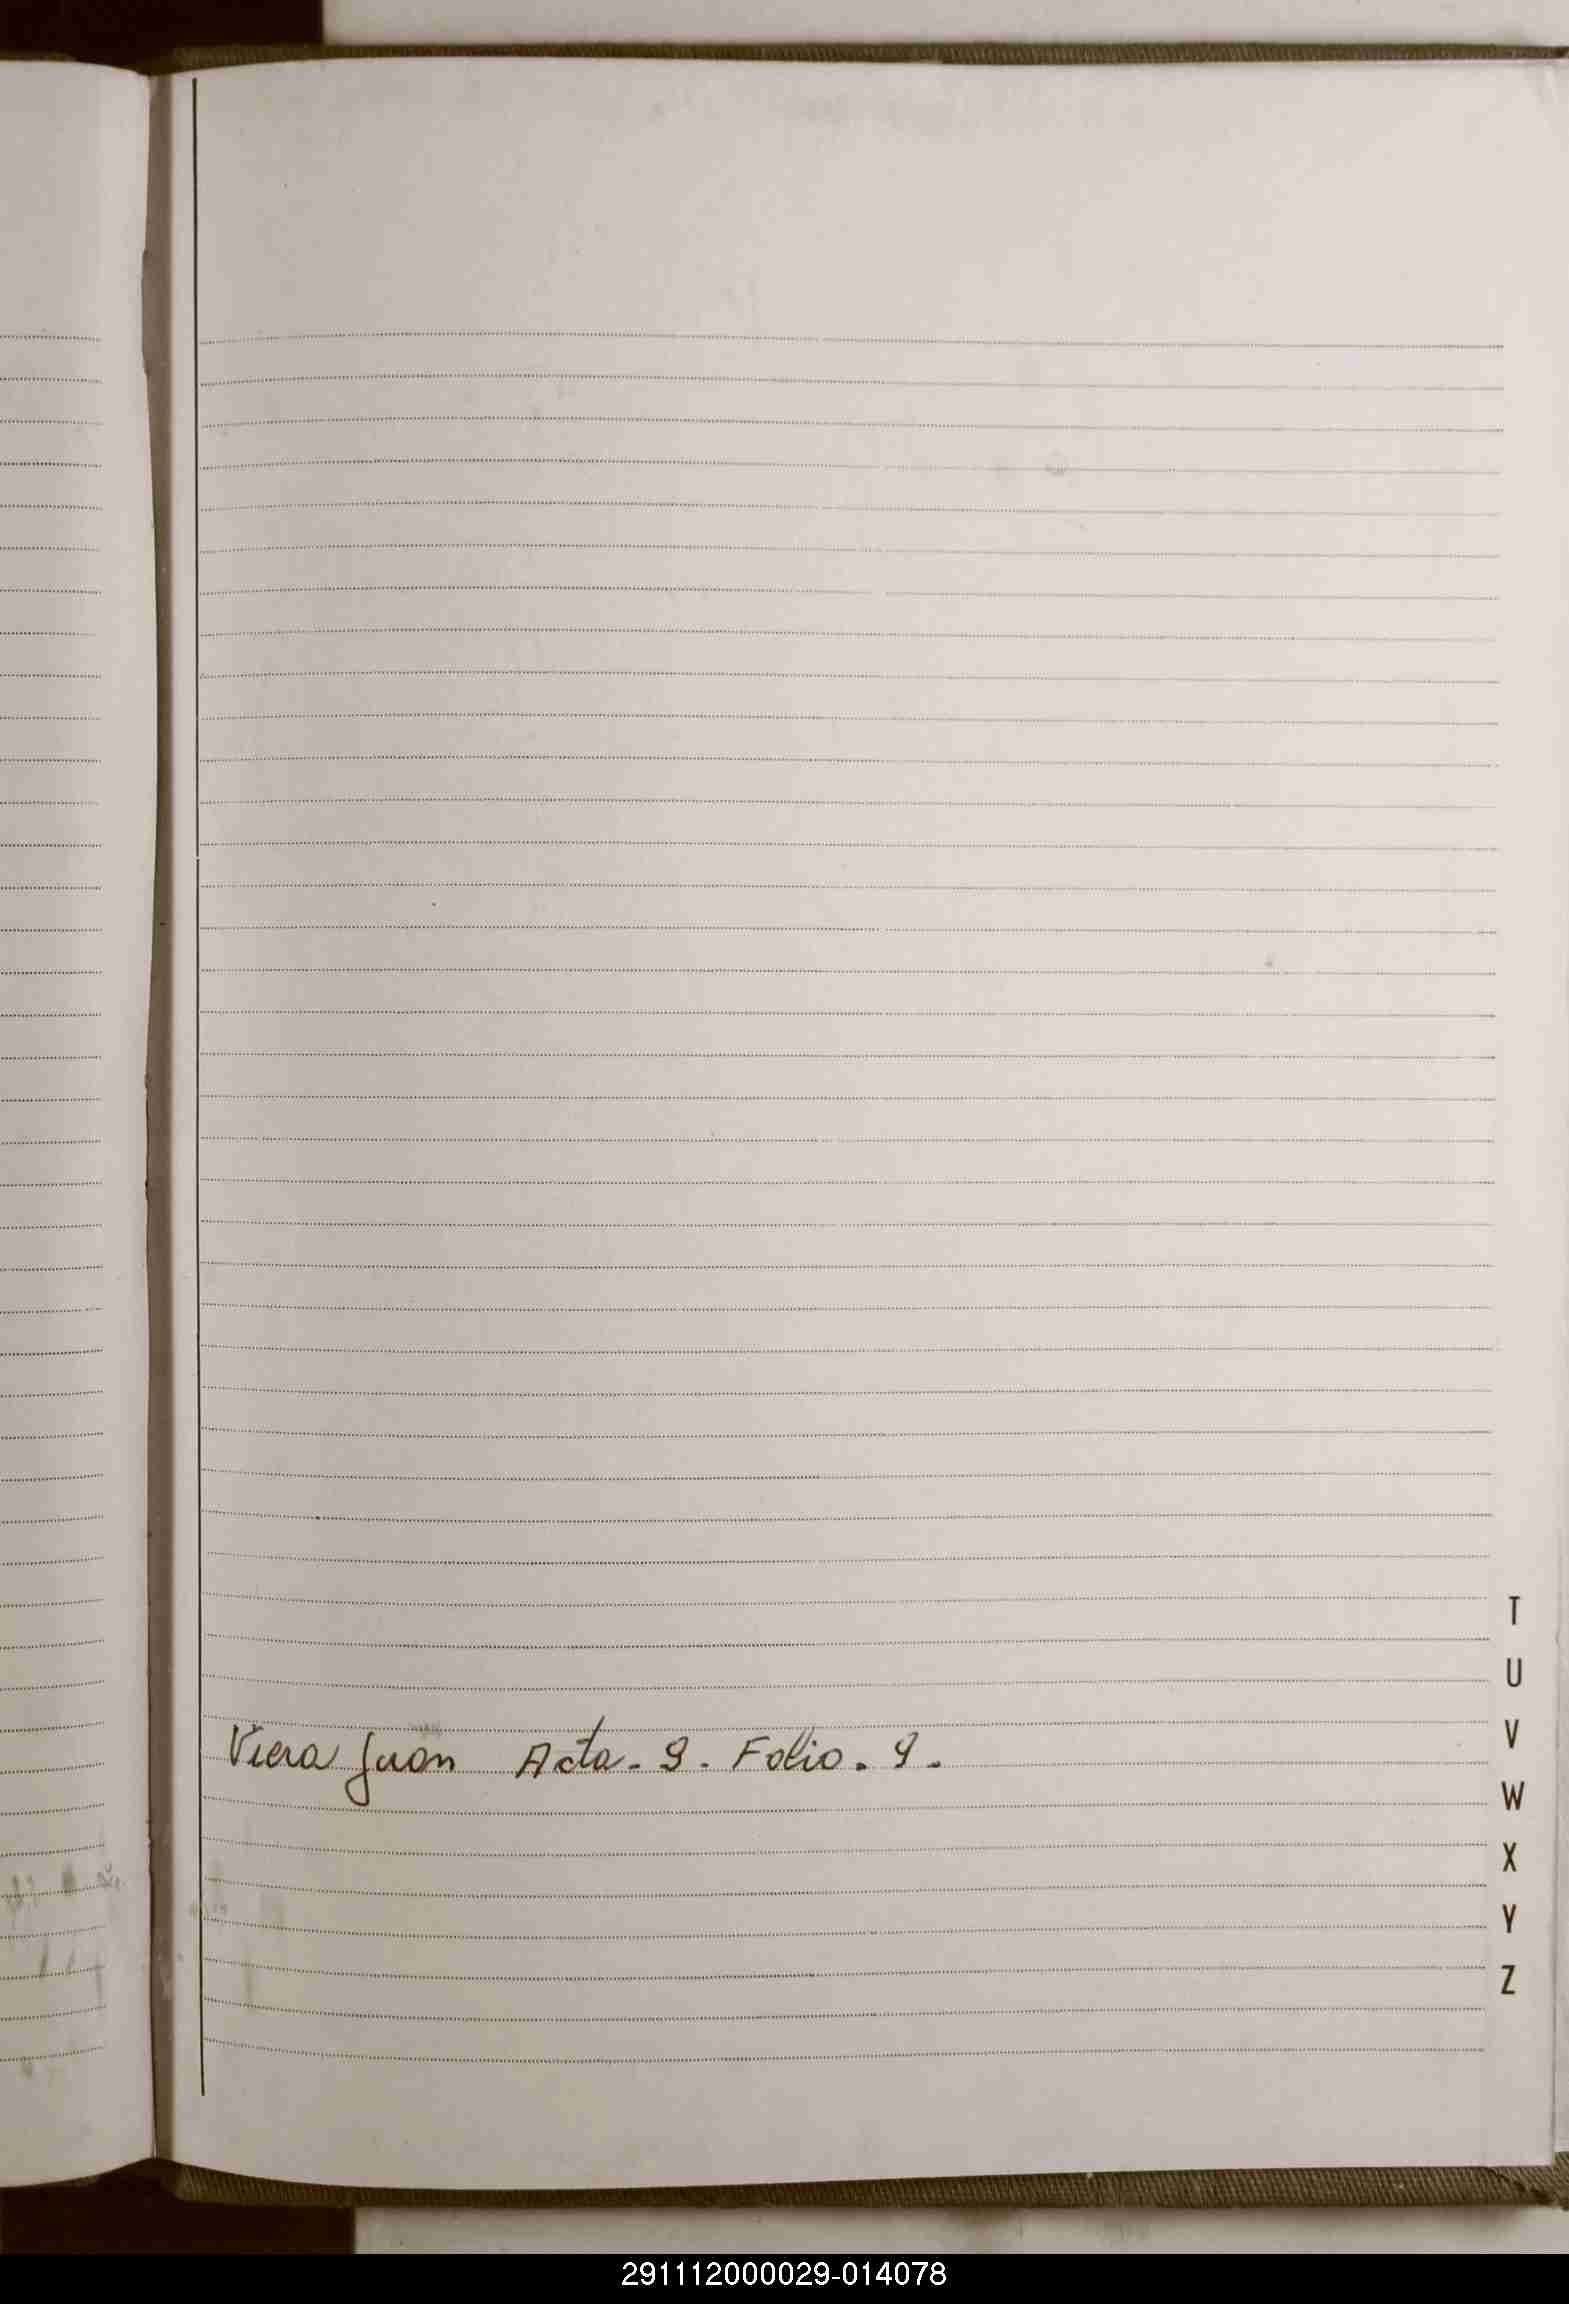 T
U
V
Viera Juan Acta. 9. Folio. 9.
W
X
Y
Z
291112000029-014078